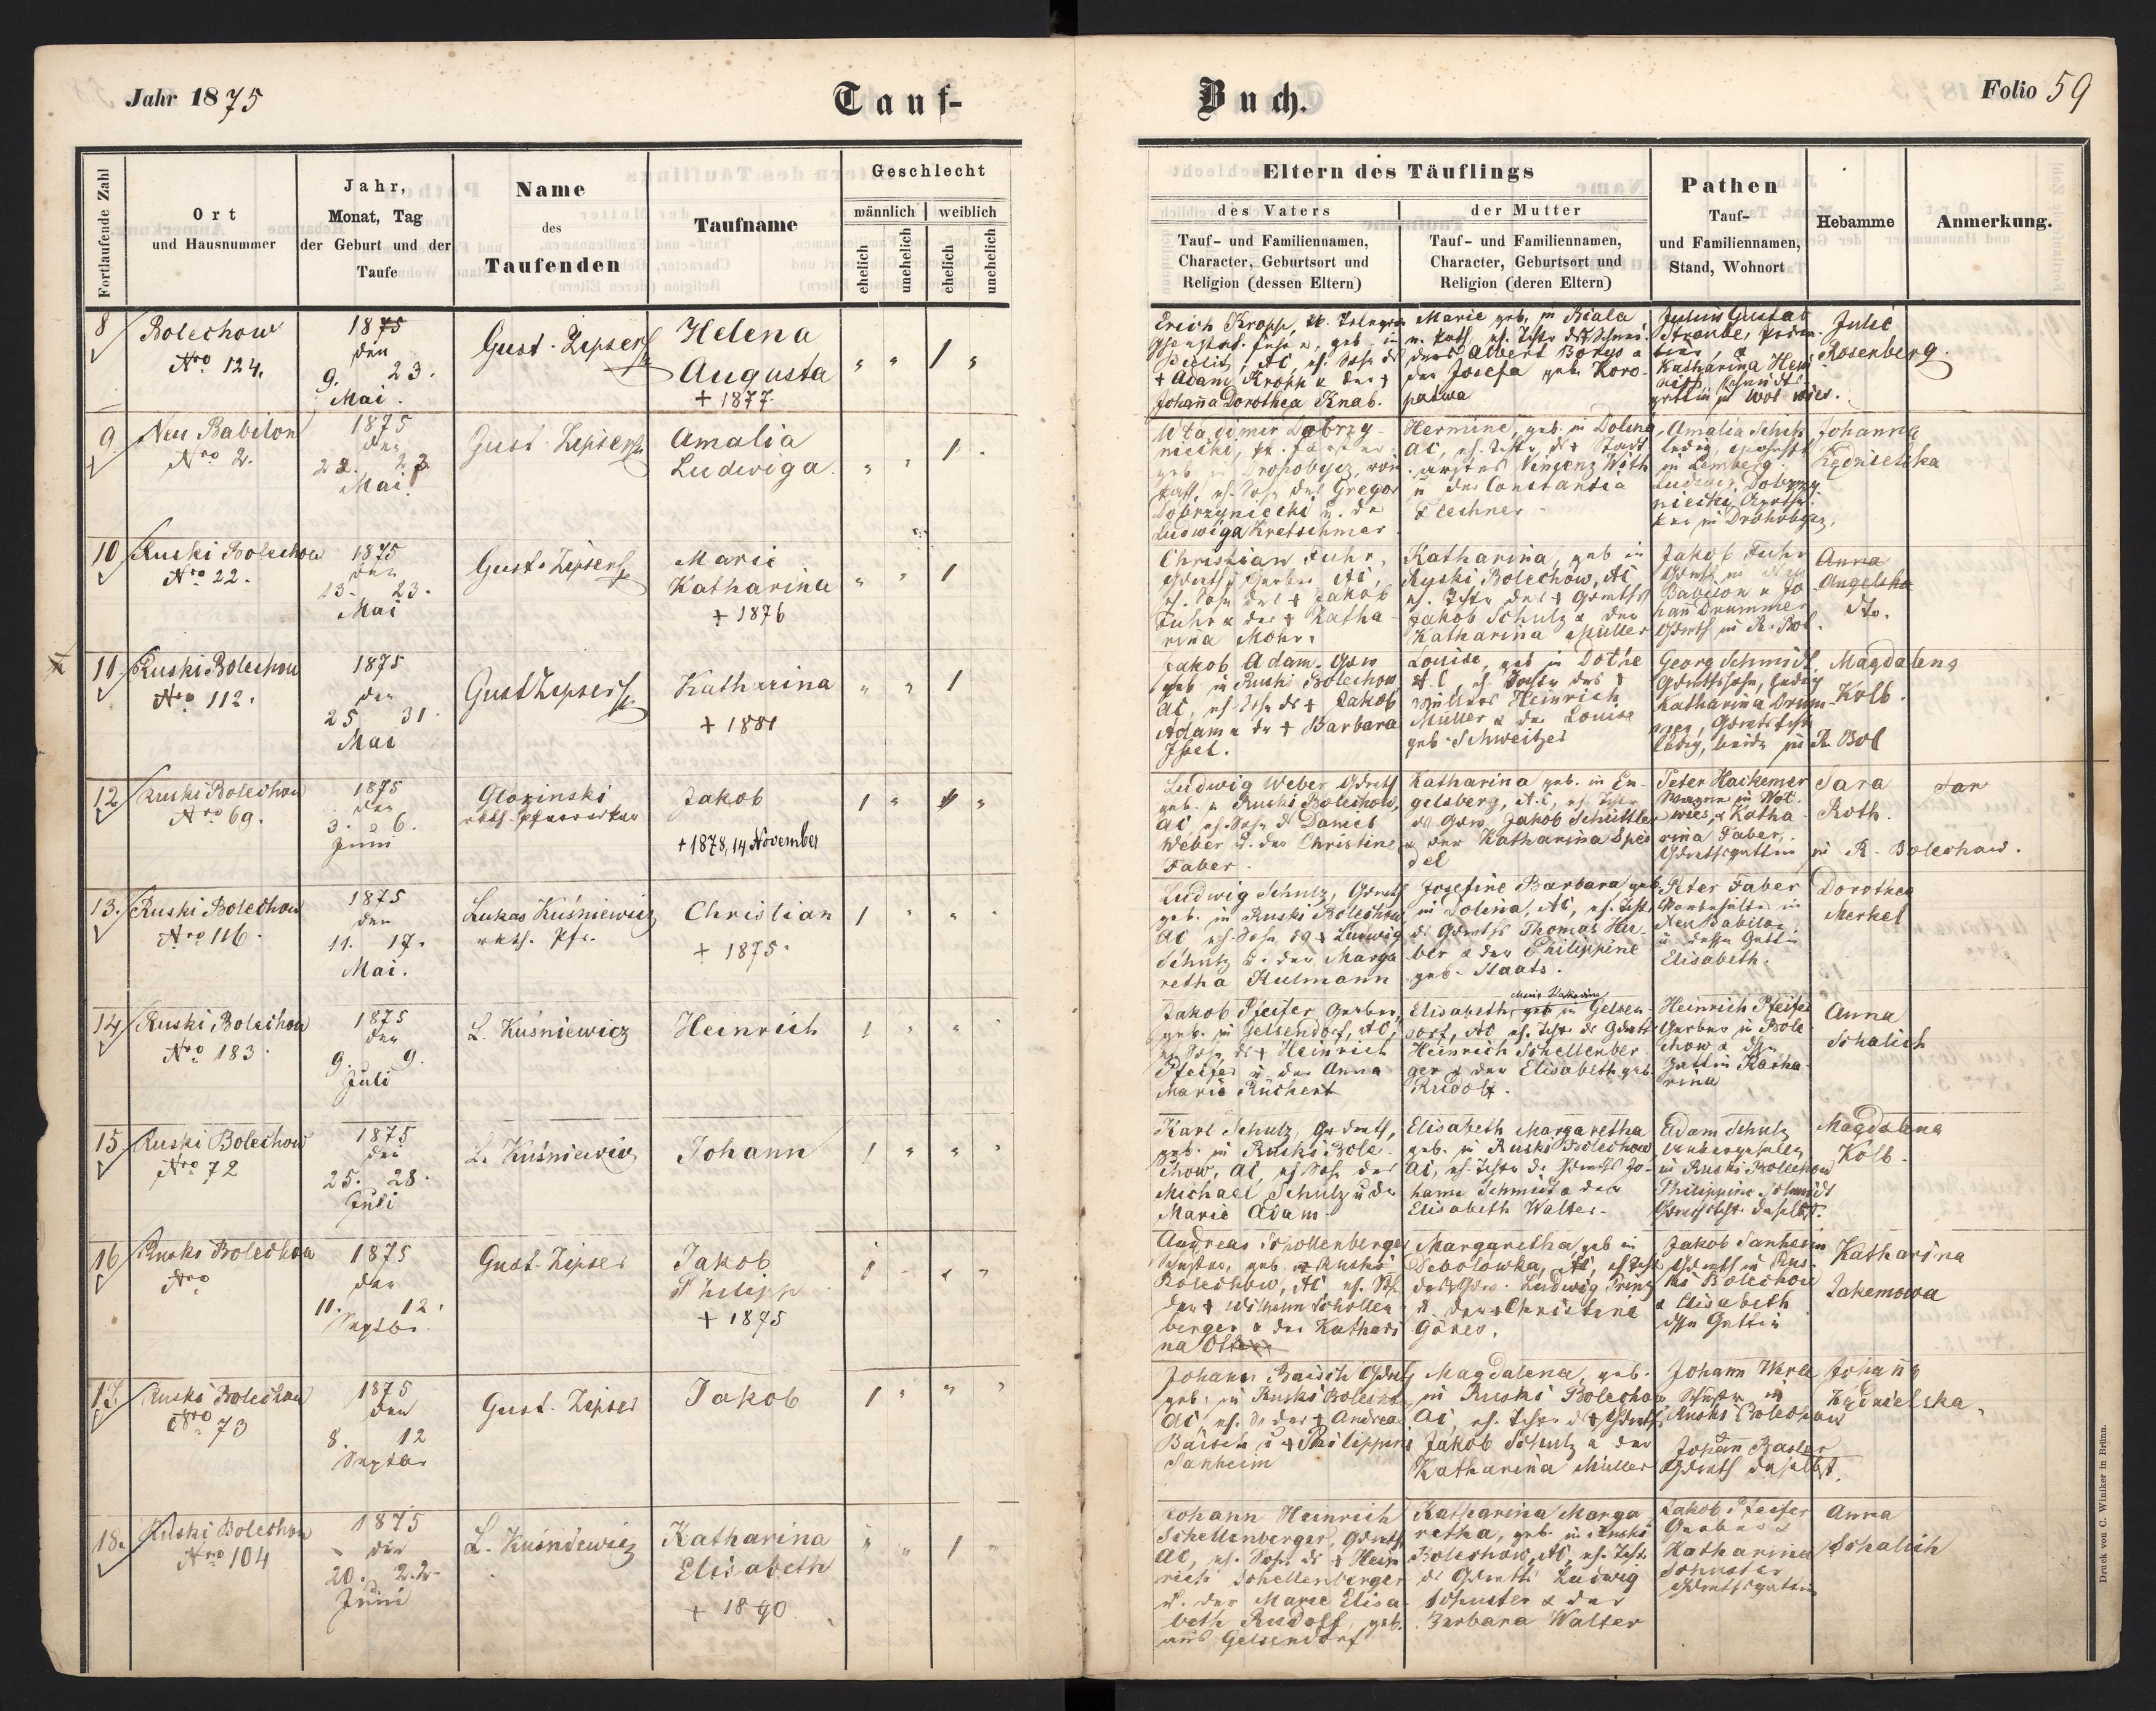 Jahr 1875
Tauf-
Buch.
Folio 59
Fortlaufende Zahl
Ort
und Hausnummer
Jahr,
Monat, Tag
der Geburt und der
Taufe
Name
des
Taufenden
Taufname
Geschlecht
männlich
weiblich
ehelich
unehelich
ehelich
unehelich
Eltern des Täuflings
des Vaters
Tauf- und Familiennamen,
Character, Geburtsort und
Religion (dessen Eltern)
der Mutter
Tauf- und Familiennamen,
Character, Geburtsort und
Religion (deren Eltern)
Pathen
Tauf-
und Familiennamen,
Stand, Wohnort
Hebamme
Anmerkung.
8
Bolechow
Nro 124.
1875
den
9. 23.
Mai.
Gust. Zipser
Helena
Augusta
+ 1877
" " 1 "
Erich Kropp,
geb. in
Bielitz, AC, eh. Sohn des
+ Adam Kropp u der +
Johanna Dorothea Knab.
Marie geb. in Biala
Albert Borys u
der Josefa geb. Koro-
patwa
Julius Gustav
Straube,
Katharina
gattin in
Julie
Rosenberg.
9
Neu Babilon
Nro 2.
1875
den
22. 27.
Mai.
Gust. Zipser
Amalia
Ludwiga
" " 1 .
Dobrzy-
niecki,
geb. in Drohobycz, röm.
kath. eh. Sohn des Gregor
Dobrzyniecki u. der
Ludwiga Kretschmer
Hermine, geb. in Dolina
AC, eh. Tochter des + Stadt
arztes Vinzenz With
u der Constantia
Flechner
Amalia
ledig,
in Lemberg.
Ludwig Dobrzy
niecki
in Drohobycz.
Johanna
Kędzielska
10
Ruski Bolechow
Nro 22.
1875
den
13. 23.
Mai
Gust. Zipser
Marie
Katharina
+ 1876
" " 1
Christian Fuhr,
Gerber AC,
eh. Sohn des + Jakob
Fuhr u der + Katha-
rina Mohr.
Katharina, geb in
Ruski Bolechow, AC
eh. Tochter des + Grundw
Jakob Schulz u der
Katharina Müller
Jakob Fuhr
Grundw in Neu
Babilon u Jo
hann Drummer
Grundw in R. Bol.
Anna
Angelska
11.
Ruski Bolechow
Nro 112.
1875
den
25. 31.
Mai
Gust Zipser
Katharina
+ 1881
" " 1
Jakob Adam. Grw
geb in Ruski Bolechow
AC, eh. Sohn des + Jakob
Adam u der + Barbara
Isel.
Louise, geb in Dolhe
AC, eh Tochter des +
Müllers Heinrich
Müller u der Louise
geb. Schweitzer
Georg Schmidt
ledig
Katharina Drum-
mer,
ledig, beide in R. Bol
Magdalena
Kolb.
12
Ruski Bolechow
Nro 69.
1875
den
3. 6.
Juni
Glozinski
Jakob
+ 1878, 14 November
1 " "
Ludwig Weber Grundw
geb. in Ruski Bolechow,
AC eh. Sohn des Daniel
Weber u. der Christine
Faber.
Katharina geb. in En-
gelsberg, A.C, eh Tochter
des Grw Jakob Schüttler
u der Katharina Spei
del
Peter Hackemer
Wagner in
u Katha
rina Faber,
Grundwgattin in R. Bolechow.
Sara
Roth.
13.
Ruski Bolechow
Nro 116.
1875
den
11. 17.
Mai.
Lukas Kuśniewicz
rkth. Pfr.
Christian
+ 1875.
1 " " "
Ludwig Schulz, Grundw
geb. in Ruski Bolechow
AC eh. Sohn des + Ludwig
Schulz u. der Marga
retha Kulmann
Josefine Barbara geb.
in Dolina, AC, eh. Tocht
des Grundws Thomas Hu-
ber u der Philippine
geb. Staats.
Peter Faber
in
Neu Babilon
u dessen Gattin
Elisabeth.
Dorothea
Merkel
14
Ruski Bolechow
Nro 183.
1875
den
9. 9.
Juli
L. Kuśniewicz
Heinrich
1 " " "
Jakob Pfeifer Gerber,
geb. in Gelsendorf, AC,
eh. Sohn des + Heinrich
Pfeifer u der Anna
Marie Rückert
Elisabeth, geb in Gelsen-
dorf, AC eh. Tochter des Grundw
Heinrich Schellenber-
ger u der Elisabeth geb
Rudolf.
Heinrich Pfeifer
Gerber in Bole
chow u dssn
Gattin Katha-
rina
Anna
Schalich
15.
Ruski Bolechow
Nro 72
1875
den
25. 28.
Juli
L. Kuśniewicz
Johann
1 " " "
Karl Schulz, Grundw,
geb. in Ruski Bole-
chow, AC, eh Sohn des
Michael Schulz u der
Marie Adam.
Elisabeth Margaretha
geb. in Ruski Bolechow
AC, eh. Tochter des Grundws Jo-
hann Schmidt u der
Elisabeth Walter.
Adam Schulz
in Ruski Bolechow
Philippine Schmidt
daselbst.
Magdalena
Kolb.
16
Ruski Bolechow
Nro
1875
den
11. 12.
Septbr.
Gust. Zipser
Jakob
Philipp
+ 1875
1 " " "
Andreas Schollenberger
Schuster, geb. in Ruski
Bolechow, AC, eh. Sohn
des + Wilhelm Schollen
berger u der Kathari
na Ott
Margaretha, geb in
Debolowka, AC, eh Tocht
des + Grw. Ludwig Prinz
u. der + Christine
Göres.
Jakob Sanheim
Grundw in Rus-
ki Bolechow
u Elisabeth
dssn Gattin
Katharina
Jakemowa
17.
Ruski Bolechow
Nro 73
1875
den
8. 12
Septbr
Gust. Zipser
Jakob
1 " " "
Johann Baisch Grundw
geb. in Ruski Bolechow
AC, eh. So des + Andreas
Baisch u + Philippine
Sanheim
Magdalena, geb.
in Ruski Bolechow
AC, eh. Tochter des + Grundws
Jakob Schulz u der
Katharina Müller
Johann Werle
Schuster in
Ruski Bolechow
Johann
Grundw daselbst.
Johanna
Kędzielska.
18.
Ruski Bolechow
Nro 104
1875
den
20. 22.
Juni
L. Kuśniewicz
Katharina
Elisabeth
+ 1890
" " 1 "
Johann Heinrich
Schellenberger, Grundw,
AC, eh. Sohn des + Hein
rich Schellenberger
u. der Marie Elisa-
beth Rudolf, geb.
aus Gelsendorf
Katharina Marga
retha, geb. in Ruski
Bolechow, AC, eh. Tocht.
des Grundws Ludwig
Schuster u der
Barbara Walter
Jakob Pfeifer
Gerber u
Katharina
Schuster
Grundwgattin
Anna
Schalich
Druck von C. Winiker in Brünn.